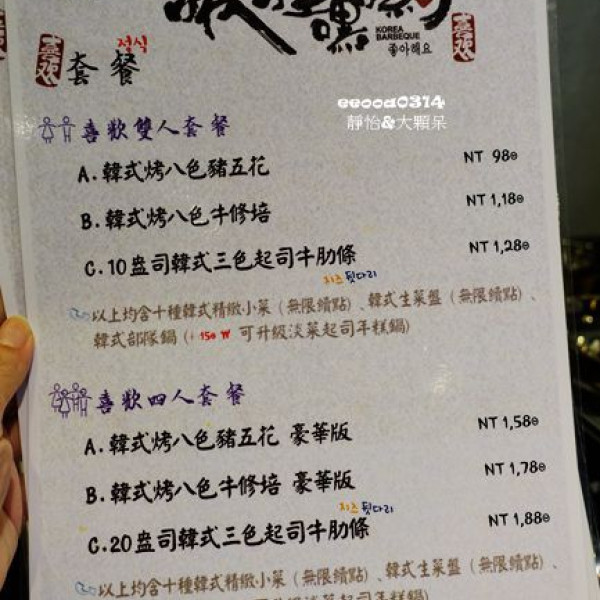 KOREA
BARBEQUE
좋아해요
喜欢
喜欢
정식
套餐
eeooa0314
靜怡&大顆呆
喜歡雙人套餐
A.韓式烤八色豬五花 NT 980
B.韓式烤八色牛修培 NT 1,180
C.10盎司韓式三色起司牛肋條 NT 1,280
치즈 뒷다리
以上均含十種韓式精緻小菜(無限續點)、韓式生菜盤(無限續點)、
韓式部隊鍋(+150₩ 可升級淡菜起司年糕鍋)
喜歡四人套餐
A.韓式烤八色豬五花 豪華版 NT 1,580
B.韓式烤八色牛修培 豪華版 NT 1,780
치즈 뒷다리
C.20盎司韓式三色起司牛肋條 NT 1,880
以上均含十種韓式精緻小菜(無限續點)、韓式生菜盤(無限續點)、
可升級淡菜起司年糕鍋)